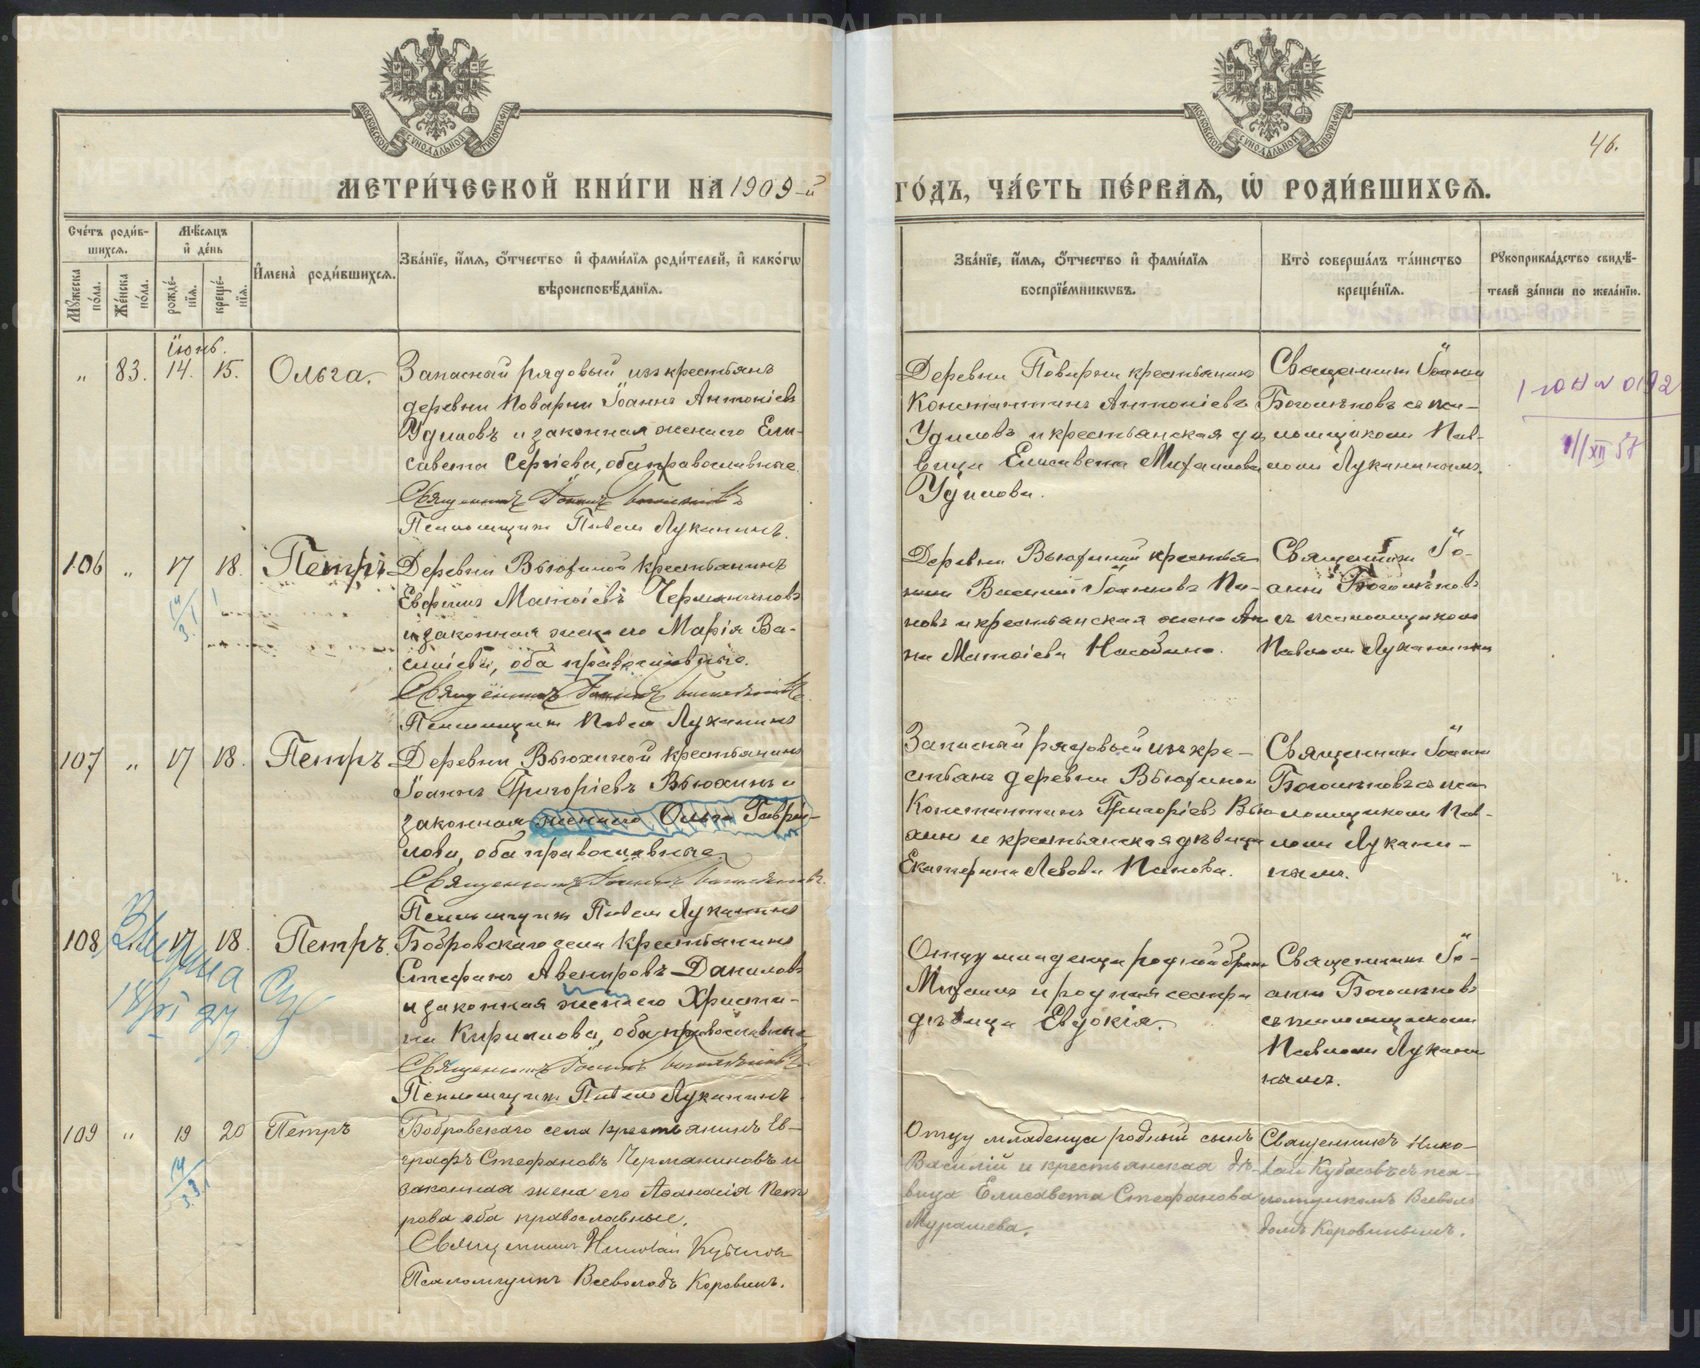 МЕТРИ́ЧЕСКОЙ КНИ́ГИ НА 1909-й
ГО́ДЪ, ЧА́СТЬ ПЕ́РВАЯ, Ѡ РОДИ́ВШИХСЯ.
46.
Сче́тъ роди́в-
шихся.
Му́жеска по́ла.
Же́нска по́ла.
Мѣ́сяцъ
и де́нь
рожде́-
нїя.
креще́-
нїя.
Имена̀ роди́вшихся.
Зва́нїе, и́мя, о́тчество и фами́лїя роди́телей, и како́гѡ
вѣроисповѣ́данїя.
Зва́нїе, и́мя, о́тчество и фами́лїя
воспрїе́мникѡвъ.
Кто̀ соверша́лъ та́инство
креще́нїя.
Рукоприкла́дство свидѣ́-
телей за́писи по жела́нїю.
Іюнь.
" 83. 14. 15. Ольга.
Запасный рядовый изъ крестьянъ
деревни Поварни Іоаннъ Антоніевъ
Удиловъ и законная жена его Ели-
савета Сергіева, оба православные.
Священникъ Іоаннъ
Псаломщикъ Павелъ Луканинъ.
Деревни Поварни крестьянинъ
Константинъ Антоніевъ
Удиловъ и крестьянская дѣ-
вица Елисавета Михаилова
Удилова.
Священникъ Іоаннъ
Богомѣновъ съ пса-
ломщикомъ Пав-
ломъ Луканинымъ.
1/XII 57
106 " 17 18. Петръ
Деревни Вьюхиной крестьянинъ
Евфимъ Матѳіевъ
и законная жена его Марія Ва-
силіева, оба православные.
Священникъ Іоаннъ
Псаломщикъ Павелъ Луканинъ
Деревни Вьюхиной крестья-
нинъ Василій Іоанновъ Па-
новъ и крестьянская жена Ан-
на Матѳіева
Священникъ Іо-
аннъ
съ псаломщикомъ
Павломъ Луканинымъ
107 " 17 18. Петръ
Деревни Вьюхиной крестьянинъ
Іоаннъ Григоріевъ Вьюхинъ и
законная жена его Ольга Гаврі-
лова, оба православные.
Священникъ Іоаннъ
Псаломщикъ Павелъ Луканинъ
Запасный рядовый изъ кре-
стьянъ деревни Вьюхиной
Константинъ Григоріевъ Вью-
хинъ и крестьянская дѣвица
Екатерина Левова Панова.
Священникъ Іоаннъ
съ пса-
ломщикомъ Пав-
ломъ Лукани-
нымъ.
108 17 18. Петръ.
Бобровскаго села крестьянинъ
Стефанъ Авенировъ Даниловъ
и законная жена его Христи-
на Кириллова, оба православные
Священникъ Іоаннъ
Псаломщикъ Павелъ Луканинъ.
Отцу младенца родной братъ
Михаилъ и родная сестра
дѣвица Евдокія.
Священникъ Іо-
аннъ
съ псаломщикомъ
Павломъ Лукани-
нымъ.
109 " 19 20 Петръ
Бобровскаго села крестьянинъ Ев-
графъ Стефановъ Черманиновъ и
законная жена его Аѳанасія Пет-
рова оба православные.
Священникъ Николай Кубасовъ
Псаломщикъ Всеволодъ Коровинъ.
Отцу младенца родный сынъ
Василій и крестьянская дѣ-
вица Елисавета Стефанова
Мурашева.
Священникъ Нико-
лай Кубасовъ съ пса-
ломщикомъ Всево-
домъ Коровинымъ.
METRIKI.GASO-URAL.RU